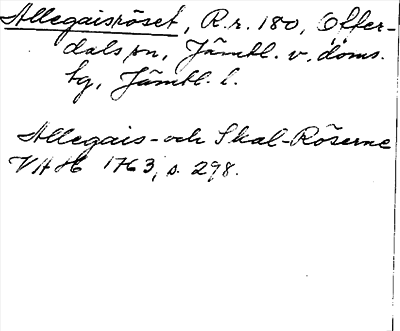 Allegaisröset, R.r. 180, Offer-
dals sn, Jämtl. v. doms.
tg, Jämtl. l.
Allegais- och Skal-Röserne
VAH 1763, s. 298.